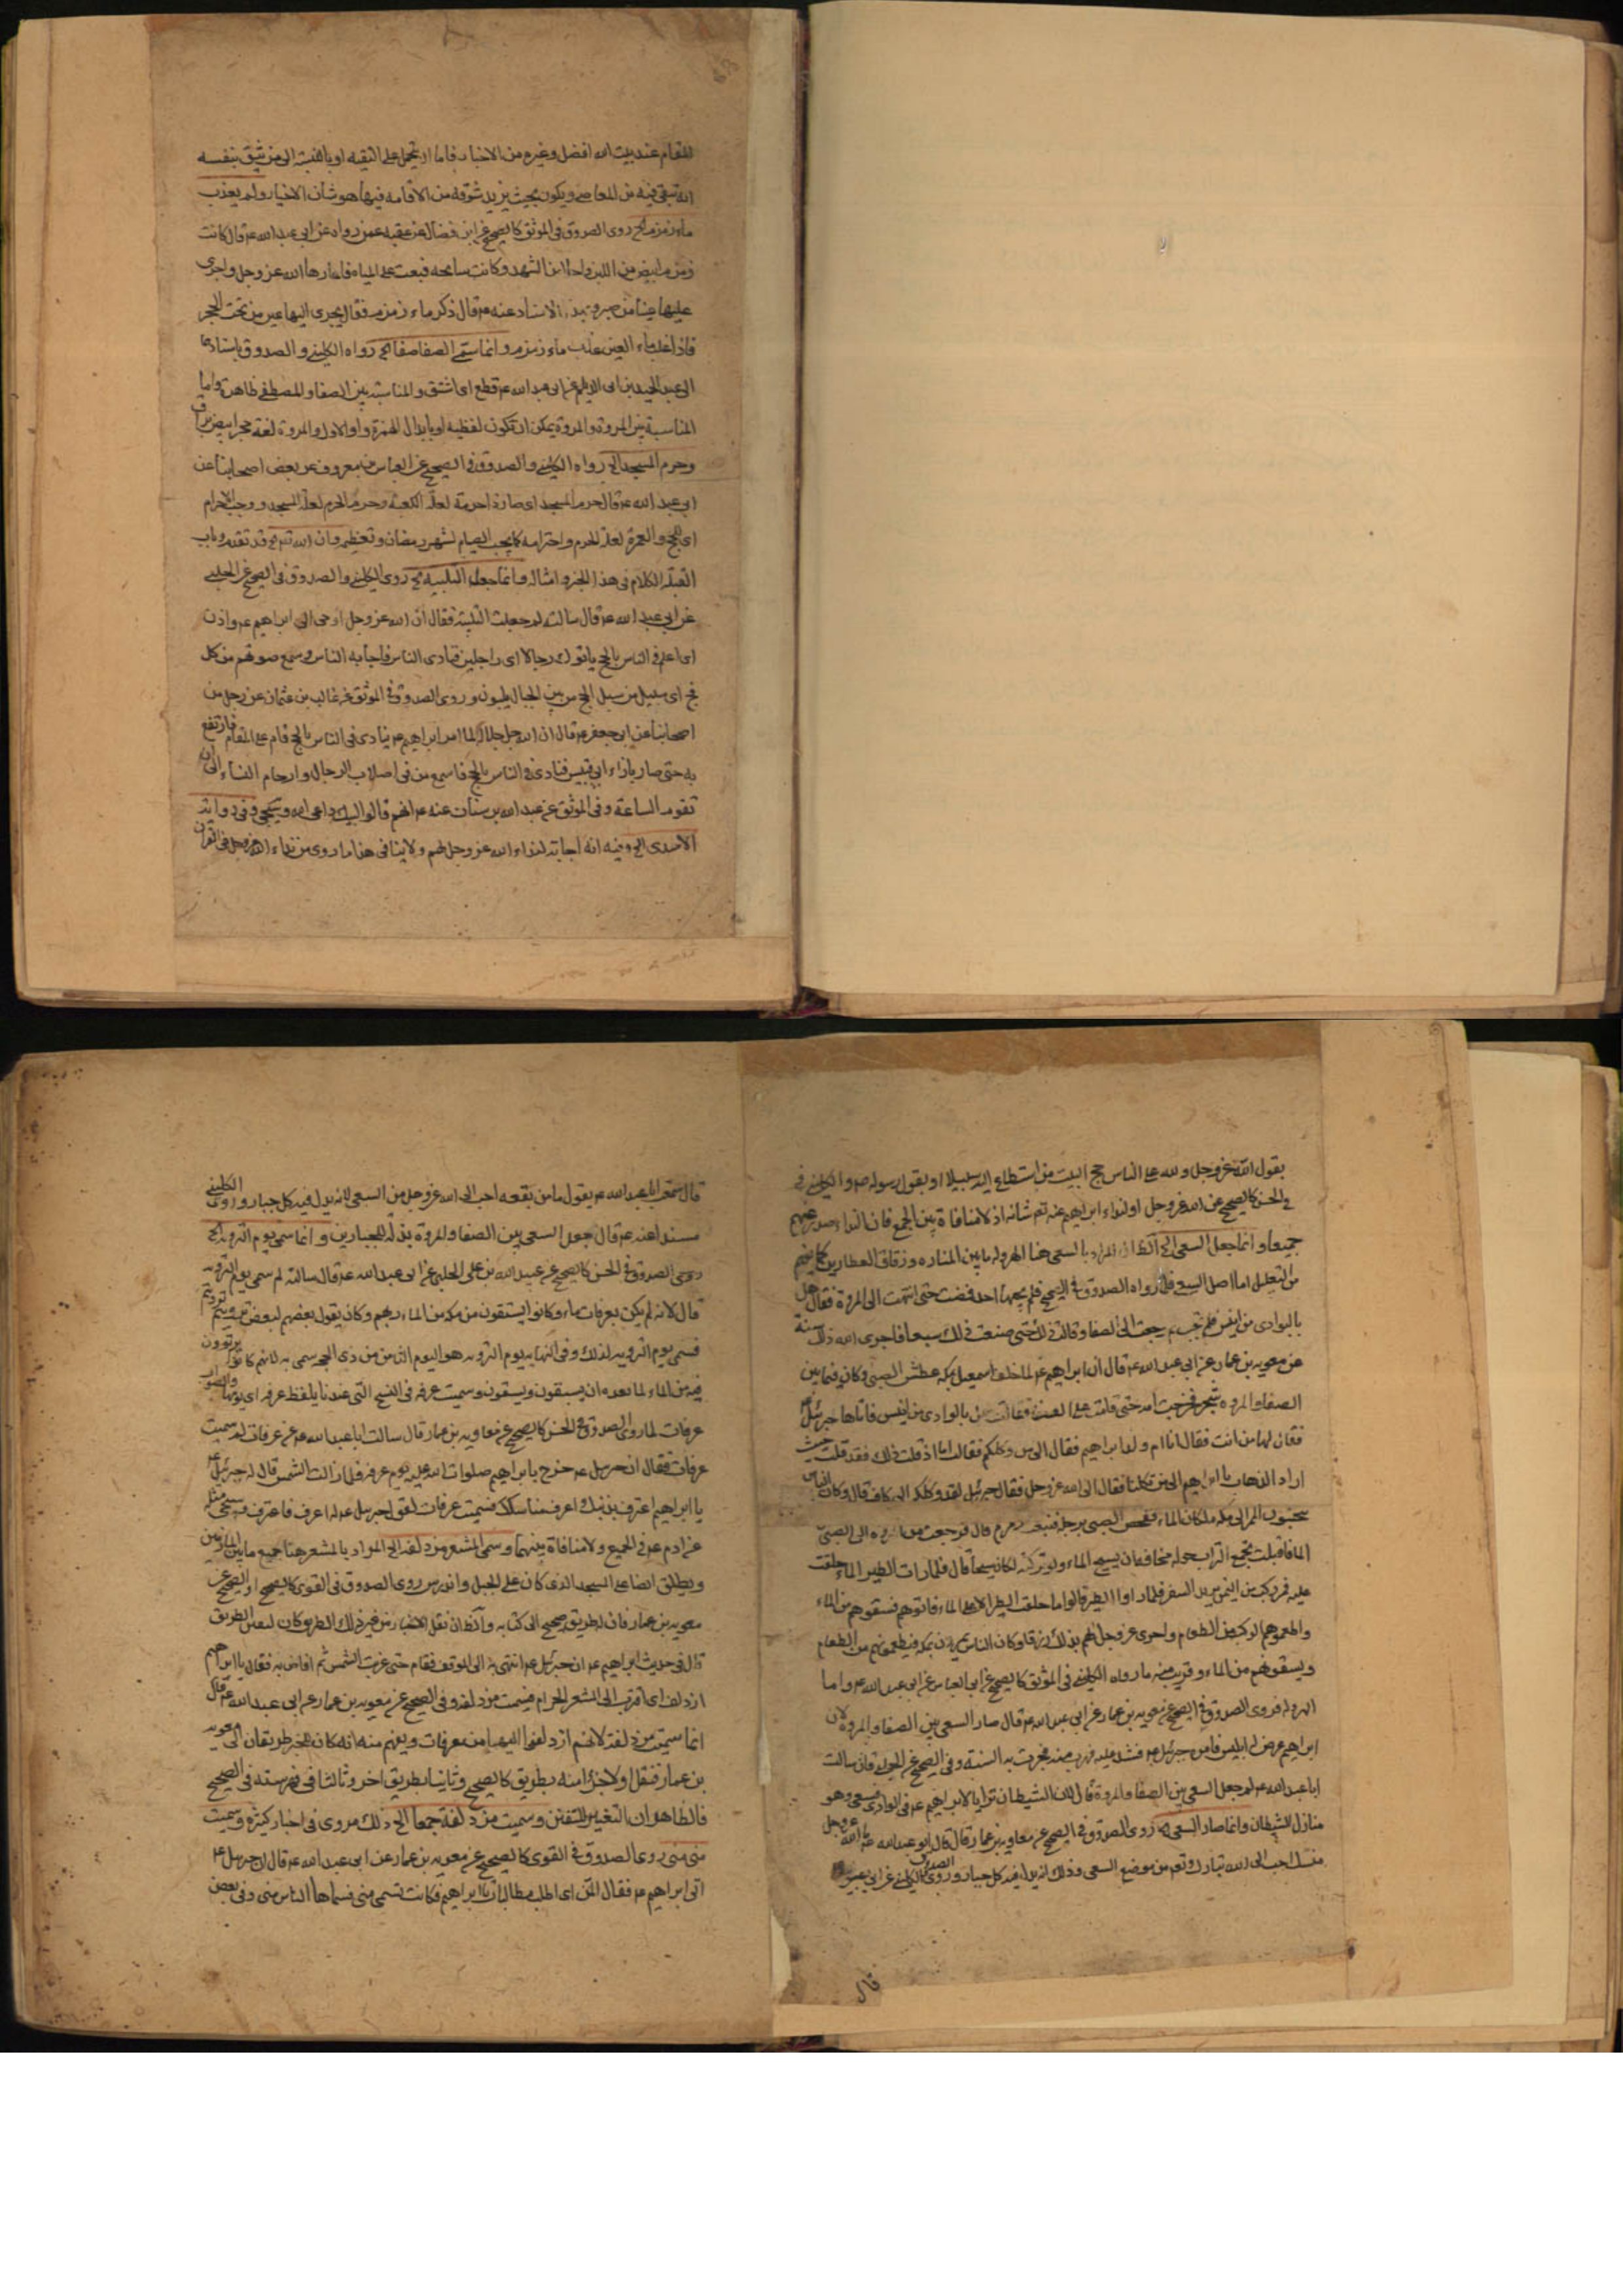 المقام عند بيت الله افضل وغيره من الاخبار فاما ان يحمل على التقيه او بالنسبة الى من يثق بنفسه
انه تبقى فيه من المعاصي ويكون بحيث يزيد شوقه من الاقامه فيها هو شأن الاخيار ولم يعذب
ماء زمزم الخ روى الصدوق في الموثق كالصحيح عن ابن فضال عن عقبه عمن رواه عن ابي عبد الله ع قال كانت
زمزم ابيض من اللبن واحلى من الشهد وكانت سايحه فبغت على المياه فاغارها الله عز وجل واجرى
عليها عينا من صبر وبهذا الاسناد عنه ع قال ذكر ماء زمزم فقال يجرى اليها عين من تحت الحجر
فاذا غلب ماء العين عذب ماء زمزم وانما سمى الصفا صفا الخ رواه الكليني والصدوق باسنادهما
الى عبد الحميد بن ابي الديلم عن ابي عبد الله ع قطع اى اشتق والمناسبة بين الصفا والمصطفى ظاهرة واما
المناسبة بين المروة والمروة يمكن ان تكون لفظيه او بابدال الهمزة واوا لاول والمروة لغة حجر ابيض براق
وحرم المسجد الخ رواه الكليني والصدوق في الصحيح عن العباس بن معروف عن بعض اصحابنا عن
ابي عبد الله ع قال حرم المسجد اى صار ذا حرمة لعلة الكعبة وحرم الحرم لعلة المسجد ووجب الاحرام
اى للحج والعمرة لعلة الحرم واحترامه كما يجب الصيام لشهر رمضان وتعظيمه وان الله تع الخ قد تقدم في باب
القبلة الكلام في هذا الخبر وامثاله وانما جعلت التلبيه الخ روى الكليني والصدوق في الصحيح عن الحلبي
عن ابي عبد الله ع قال سالته لم جعلت التلبية فقال ان الله عز وجل اوحى الى ابراهيم ع واذن
اى اعلم في الناس بالحج ياتوك رجالا اى راجلين فنادى الناس فاجابه الناس وسمع صوتهم من كل
فج اى سبيل من سبل الحج من بين الجبال يلبون وروى الصدوق في الموثق عن غالب بن عثمان عن رجل من
اصحابنا عن ابي جعفر ع قال ان الله جل جلاله لما امر ابراهيم ع ينادى في الناس بالحج قام على المقام فارتفع
به حتى صار بازاء ابي قبيس فنادى في الناس بالحج فاسمع من في اصلاب الرجال وارحام النساء الى ان
تقوم الساعة وفي الموثق عن عبد الله بن سنان عنه ع انهم قالوا لبيك داعي الله وسيجئ وفي رواية
الاسدى الخ وفيه انه اجابة لنداء الله عز وجل لهم ولا ينافى هذا ما روى من نداء الله عز وجل في القران
يقول الله عز وجل ولله على الناس حج البيت من استطاع اليه سبيلا او بقول رسوله ص والكليني في
في الحسن كالصحيح عن الله عز وجل او لنداء ابراهيم عنه تع شانه اذ لا منافاة بين الجمع فان النداء صدر عنهم
جميعا وانما جعل السعى الخ الظ ان المراد بالسعى هنا الهروله ما بين المناره وزقاق العطارين كما يفهم
من التعليل اما اصل السعى فلما رواه الصدوق في الصحيح فلم يجبها احد فمضت حتى انتهت الى المروة فقال هل
بالوادى من انيس فلم تجب ثم رجعت الى الصفا وقالت ذلك حتى صنعت ذلك سبعا فاجرى الله ذلك سنة
عن معويه بن عمار عن ابي عبد الله ع قال ان ابراهيم ع لما خلف اسمعيل بمكه عطش الصبى وكان فيما بين
الصفا والمروه شجر فخرجت امه حتى قامت على الصفا فقالت هل بالوادى من انيس فاتاها جبرئيل ع
فقال لها من انت فقالت انا ام ولد ابراهيم فقال الى من وكلكم فقالت اما اذ قلت ذلك فقد قلت حيث
اراد الذهاب يا ابراهيم الى من تكلنا فقال الى الله عز وجل فقال جبرئيل لقد وكلكم الى كاف قال وكان الناس
يتجنبون الممر الى مكه لمكان الماء ففحص الصبى برجله فنبعت زمزم قال فرجعت من المروه الى الصبى
الماء فاقبلت تجمع التراب حوله مخافة ان يسيح الماء ولو تركته لكان سيحا قال فلما رات الطير الماء حلقت
عليه فمر ركب من اليمن يريد السفر فلما راوا الطير قالوا ما حلقت الطير الا على الماء فاتوهم فسقوهم من الماء
واطعموهم الركب من الطعام واجرى عز وجل لهم بذلك رزقا وكان الناس يمرون بمكه فيطعمونهم من الطعام
ويسقونهم من الماء وقريب منه ما رواه الكليني في الموثق كالصحيح عن ابي العباس عن ابي عبد الله ع واما
الهروله فروى الصدوق في الصحيح عن معويه بن عمار عن ابي عبد الله ع قال صار السعى بين الصفا والمروه لان
ابراهيم عرض له ابليس فامره جبرئيل ع فشد عليه فهرب منه فجرت به السنة وفي الصحيح عن الحلبي قال سالت
ابا عبد الله ع لم جعل السعى بين الصفا والمروة قال لان الشيطان ترايا لابراهيم ع في الوادى فسعى وهو
منازل الشيطان وانما صار السعى الخ روى الصدوق في الصحيح عن معاويه بن عمار قال قال ابو عبد الله ع ما لله عز وجل
منسك احب الى الله تبارك وتع من موضع السعى وذلك انه يذل فيه كل جبار وروى الصدوق الكليني عن ابي بصير
قال
قال سمعت ابا عبد الله ع يقول ما من بقعه احب الى الله عز وجل من السعى لانه يذل فيه كل جبار وروى الكليني
مسندا عنه ع قال جعل السعى بين الصفا والمروة مذلة للجبارين وانما سمى يوم الترويه الخ
روى الصدوق في الحسن كالصحيح عن عبيد الله بن على الحلبي عن ابي عبد الله ع قال سالته لم سمى يوم الترويه
قال لانه لم يكن بعرفات ماء وكانوا يستقون من مكه من الماء ريهم وكان يقول بعضهم لبعض ترويتم ترويتم
فسمى يوم الترويه لذلك وفي النهايه يوم الترويه هو اليوم الثامن من ذى الحجه سمى به لانهم كانوا يرتوون
فيه من الماء لما بعده اى يسقون ويستقون وسميت عرفه في النسخ التى عندنا بلفظ عرفه اى يومها والصواب
عرفات لما روى الصدوق في الحسن كالصحيح عن معاويه بن عمار قال سالت ابا عبد الله ع عن عرفات لم سميت
عرفات فقال ان جبرئيل ع خرج بابراهيم صلوات الله عليه يوم عرفه فلما زالت الشمس قال له جبرئيل ع
يا ابراهيم اعترف بذنبك واعرف مناسكك فسميت عرفات لقول جبرئيل ع له اعرف فاعترف وسيجئ مثله
عن ادم ع في الجميع ولا منافاة بينهما وسمى المشعر مزدلفه الخ المراد بالمشعر هنا جميع ما بين المازمين
ويطلق ايضا على المسجد الذى كان على الجبل والذى روى الصدوق في القوى كالصحيح او الصحيح عن
معويه بن عمار فان طريقه صحيح الى كتابه والظ ان نقل الاخبار من غير ذلك الطريق كان لتفنن الطريق
قال في حديث ابراهيم ع ان جبرئيل ع انتهى به الى الموقف فقام حتى غربت الشمس ثم افاض به فقال يا ابراهيم
ازدلف اى اقترب الى المشعر الحرام فسميت مزدلفه وفي الصحيح عن معويه بن عمار عن ابي عبد الله ع قال
انما سميت مزدلفة لانهم ازدلفوا اليها من عرفات ويفهم منه انه كان للخبر طريقان الى معويه
بن عمار فنقل اولا جزء منه بطريق كالصحيح وثانيا بطريق اخر وثالثا في فهرسته في الصحيح
فالظاهر ان التغيير للتفنن وسميت مزدلفة جمعا الخ ذلك مروى في اخبار كثيرة وسميت
منى منى روى الصدوق في القوى كالصحيح عن معويه بن عمار عن ابي عبد الله ع قال ان جبرئيل ع
اتى ابراهيم ع فقال تمن اى اطلب مطالبك يا ابراهيم فكانت تسمى منى فسماها الناس منى وفي بعض